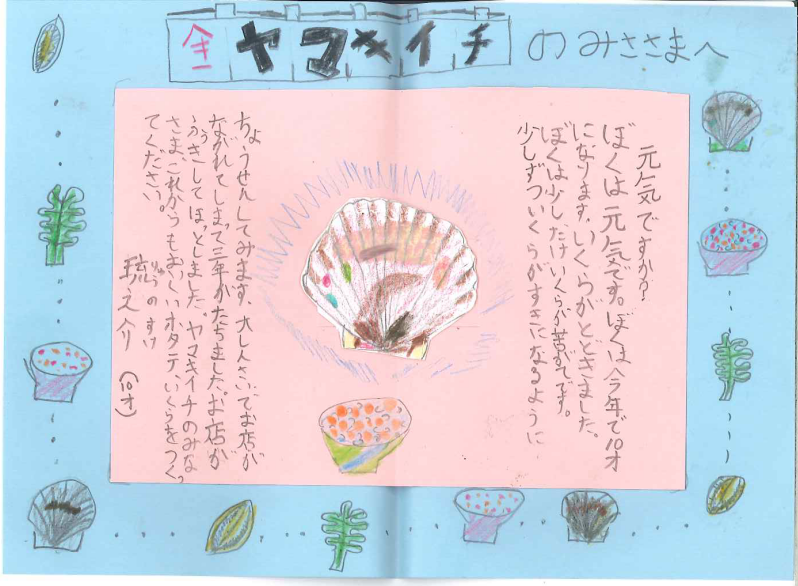 ヤマキイチのみささまへ
元気ですか?
ぼくは元気です。ぼくは今年で10才
になります。いくらがとどきました。
ぼくは少しだけいくらが苦がてです。
少しずついくらがすきになるように
ちょうせんしてみます。大しんさいでお店が
ながれてしまって三年がたちました。お店が
ふっきしてほっとしました。ヤマキイチのみな
さま、これからもおいしいホタテ、いくらをつくっ
てください。
琉之介
りゅうのすけ
(10才)